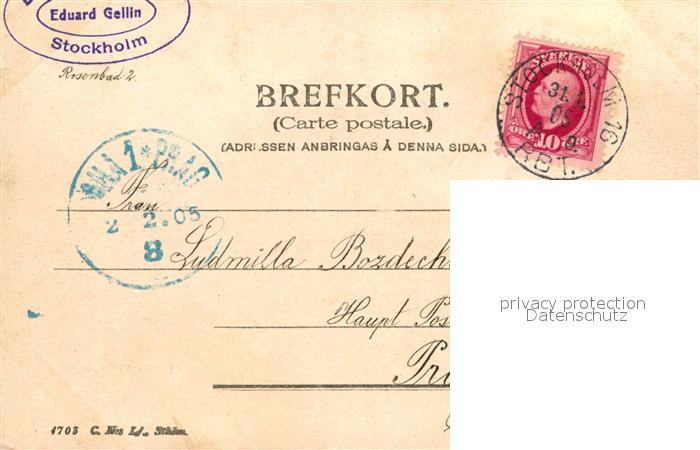 Eduard Gellin
Stockholm
Rosenbad 2.
BREFKORT.
(Carte postale.)
(ADRESSEN ANBRINGAS Å DENNA SIDA.)
STOCKHOLM 16
31.1.
05
RBT.
10
ÖRE
1 * PRAG
2 2.05
8
Frau
Ludmilla Bozdech
Haupt Pos
Pr
privacy protection
Datenschutz
1703